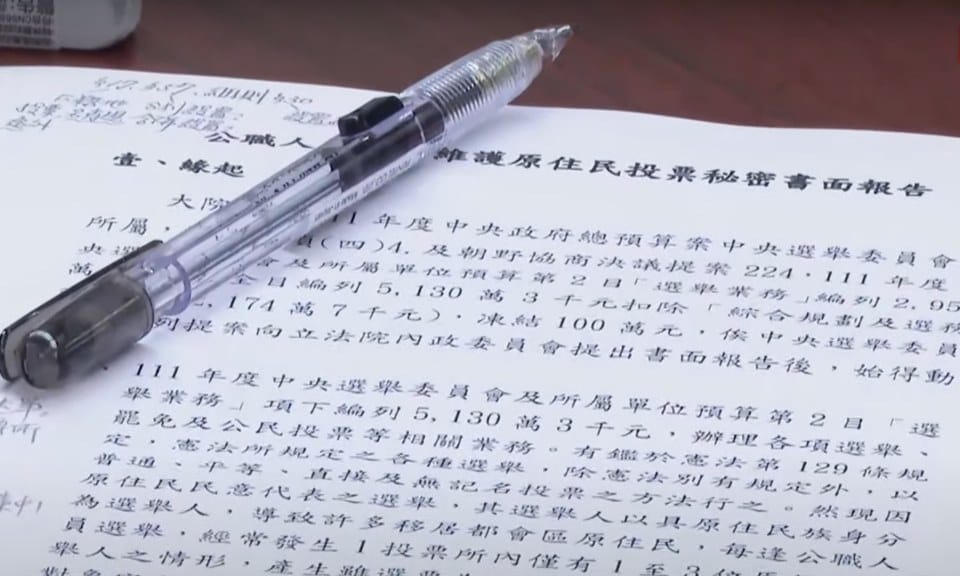 公職人
維護原住民投票秘密書面報告
壹、緣起
大院
11年度中央政府總預算案中央選舉委員會
所屬,
(四)4.及朝野協商決議提案224,111年度
央選
會及所屬單位預算第2目「選舉業務」編列2,95
萬
全目編列5,130萬3千元扣除「綜合規劃及選務
2,174萬7千元),凍結100萬元,俟中央選舉委員
列提案向立法院內政委員會提出書面報告後,始得動
111年度中央選舉委員會及所屬單位預算第2目「選
舉業務」項下編列5,130萬3千元,辦理各項選舉、
罷免及公民投票等相關業務。有鑑於憲法第129條規
定,憲法所規定之各種選舉,除憲法別有規定外,以
普通、平等、直接及無記名投票之方法行之。然現因
原住民民意代表之選舉,其選舉人以具原住民族身分
為選舉人,導致許多移居都會區原住民,每逢公職人
員選舉,經常發生1投票所內僅有1至3位原
舉人之情形,產生雖選票為